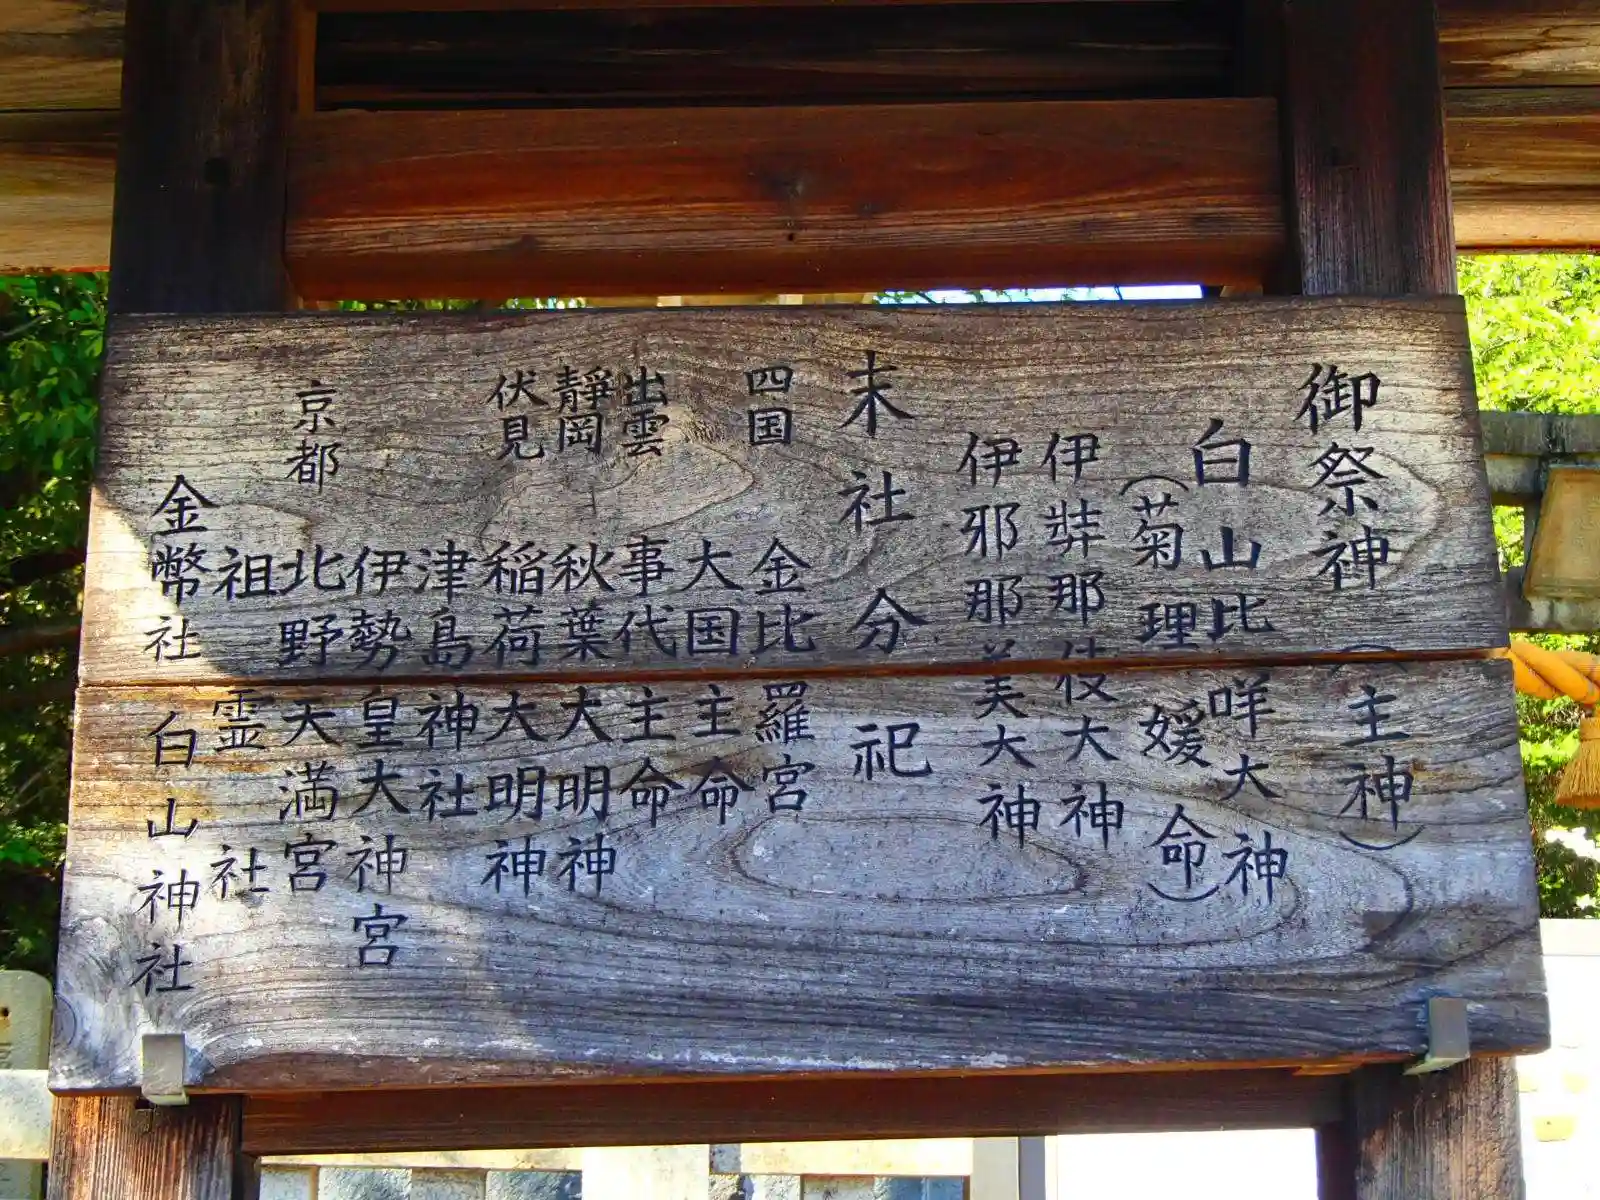 御祭神（主神）
白山比咩大神
（菊理媛命）
伊弉那伎大神
伊邪那美大神
末社分祀
四国 金比羅宮
大国主命
出雲 事代主命
静岡 秋葉大明神
伏見 稲荷大明神
津島神社
伊勢皇大神宮
京都 北野天満宮
祖霊社
金幣社白山神社